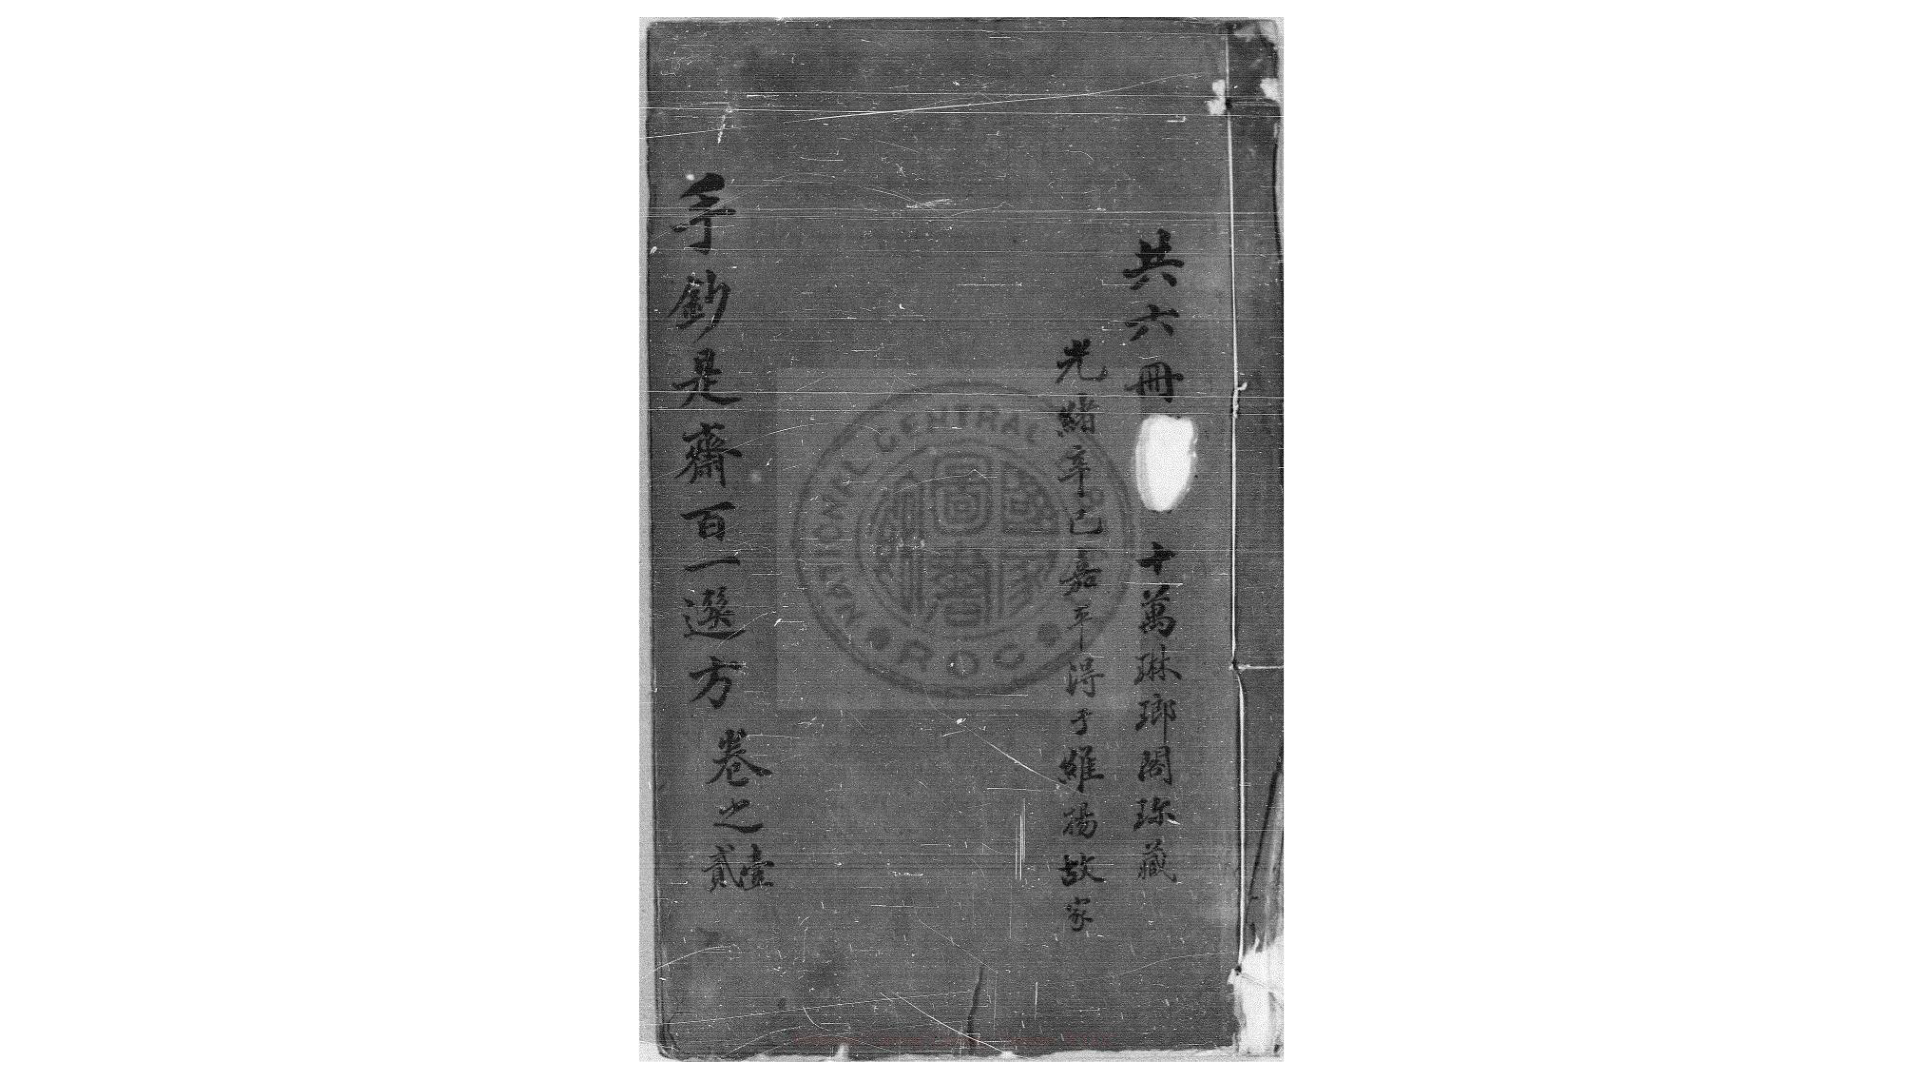 共六冊 十萬琳瑯閣珍藏
光緒辛巳嘉平得于維揚故家
手鈔是齋百一選方 卷之壹貳
NATIONAL CENTRAL
國家圖書
ROC